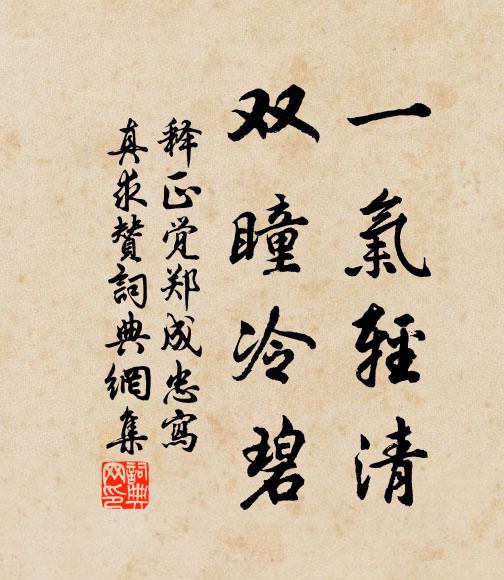 一氣輕清
双瞳冷碧
释正觉郑成忠寫
真求贊詞典網集
詞典
网印